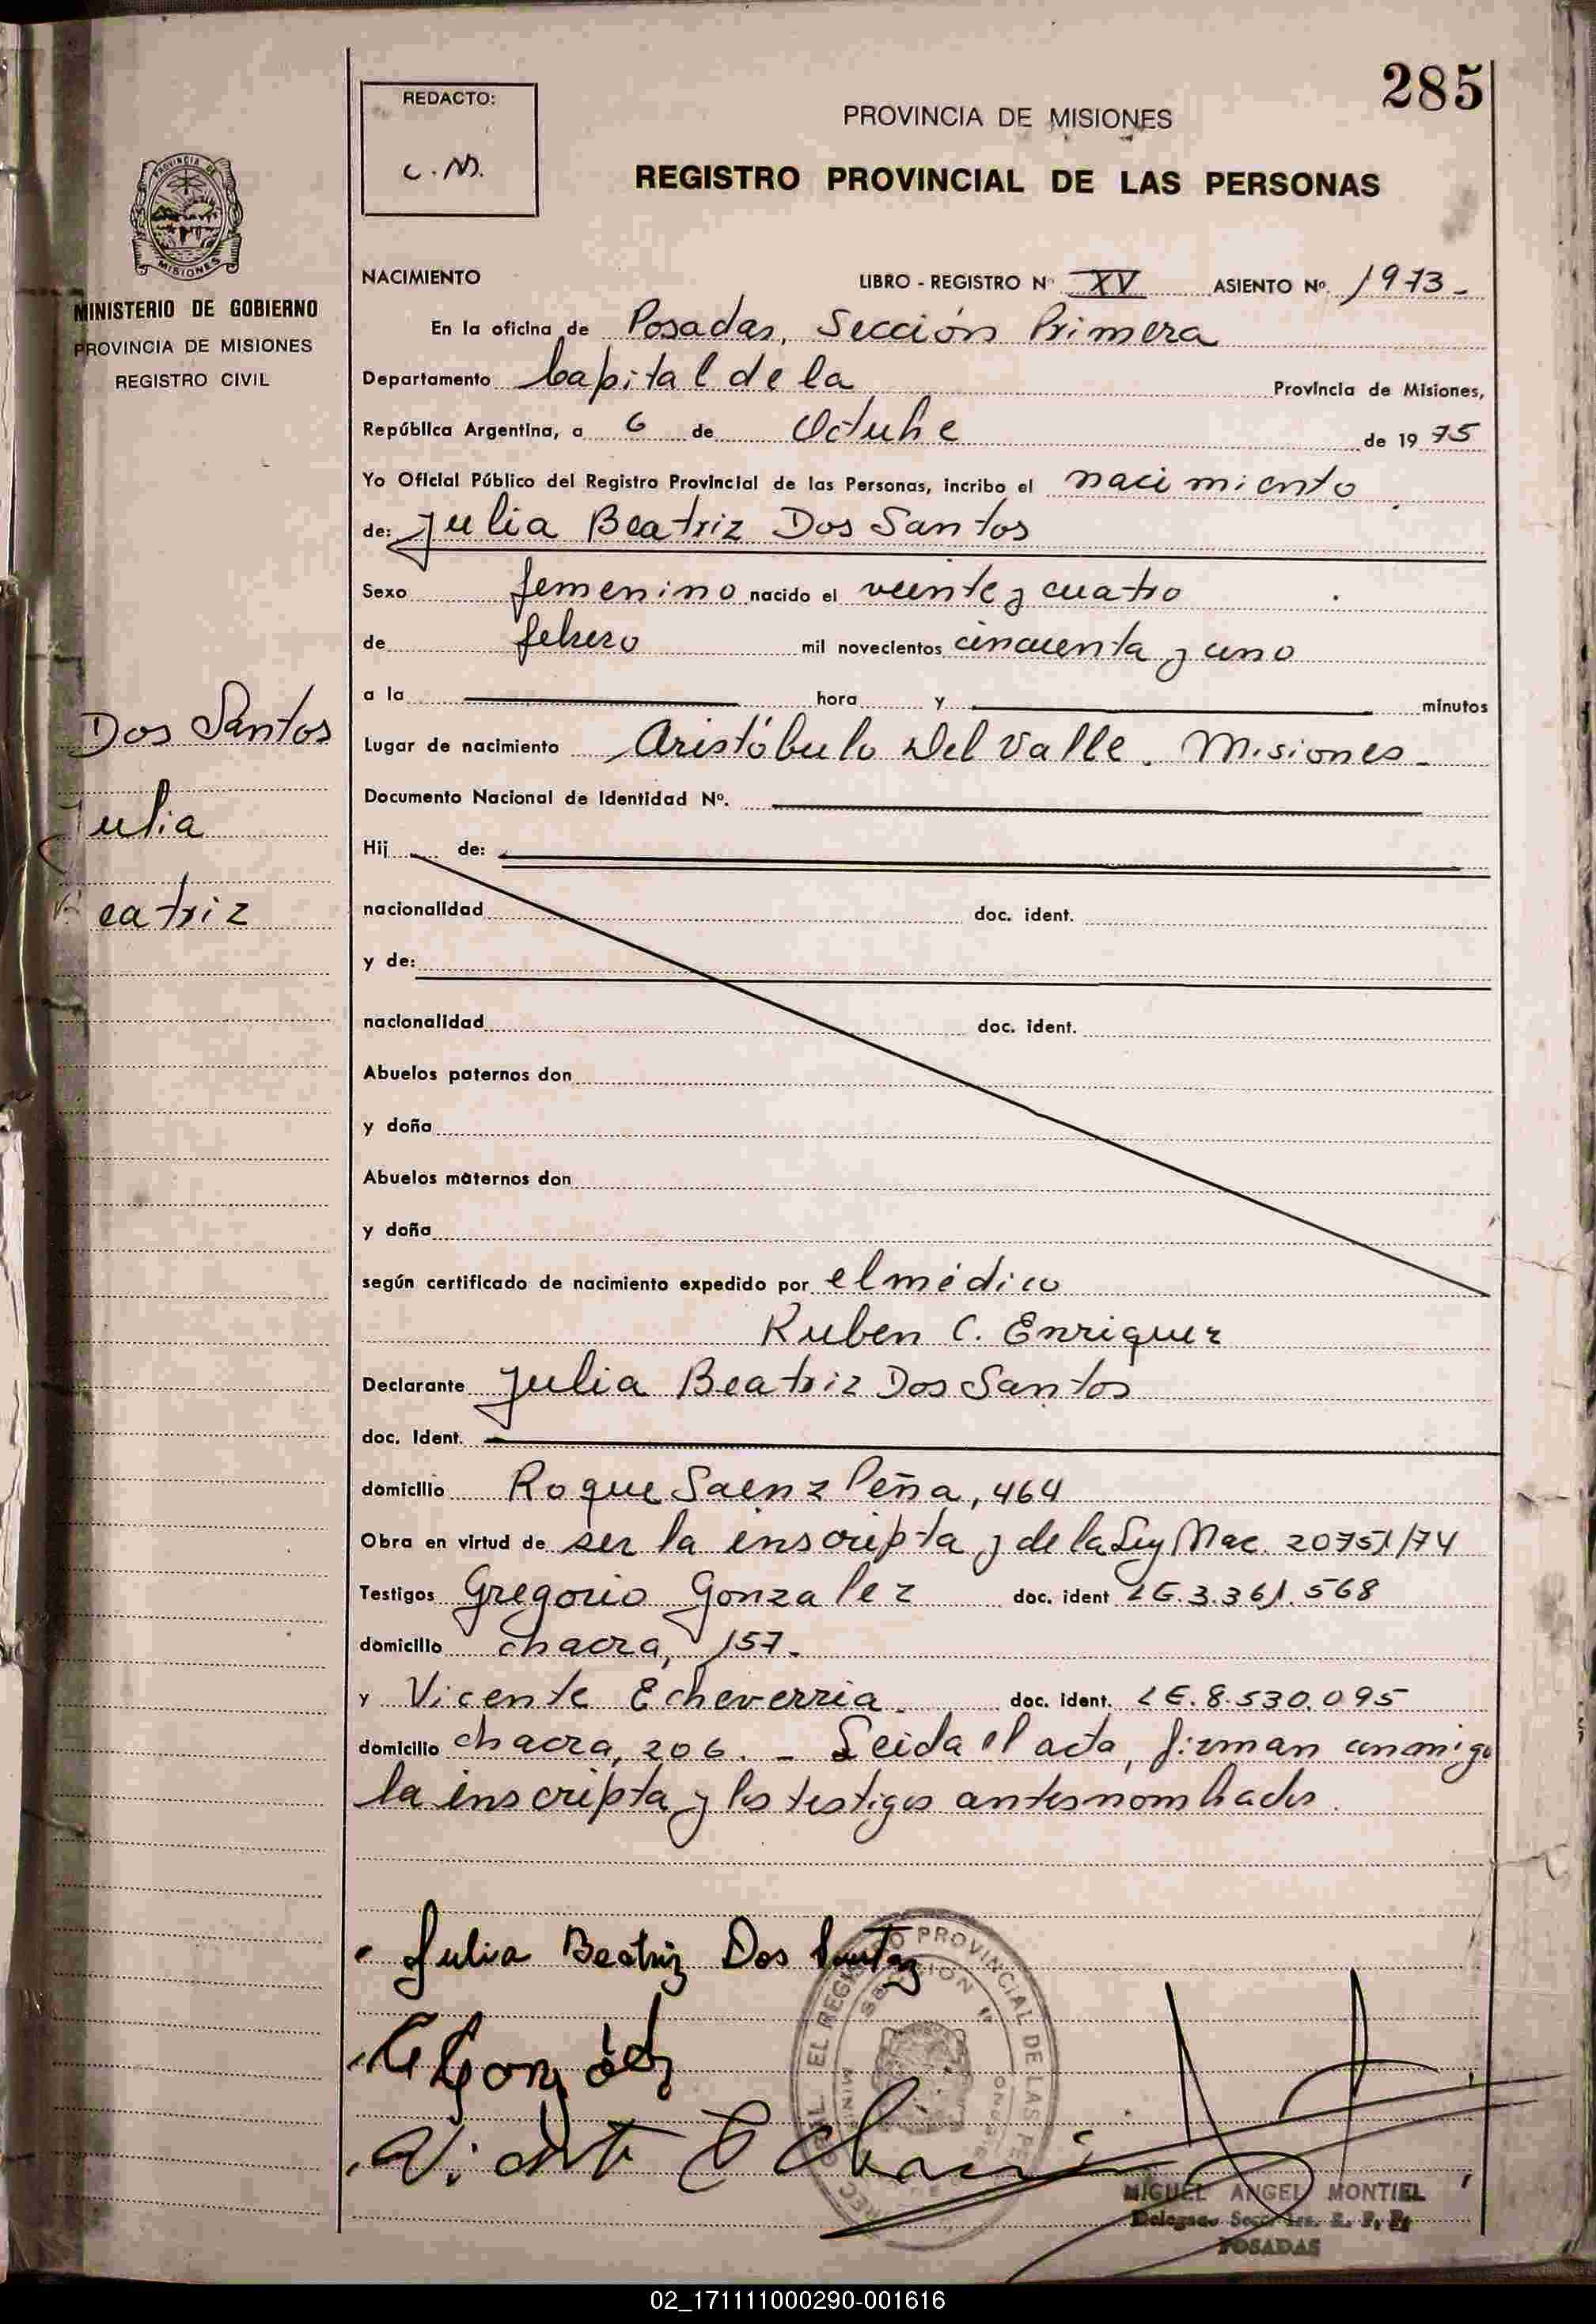 285
REDACTO:
C. M.
PROVINCIA DE MISIONES
REGISTRO PROVINCIAL DE LAS PERSONAS
PROVINCIA DE
MISIONES
MINISTERIO DE GOBIERNO
PROVINCIA DE MISIONES
REGISTRO CIVIL
NACIMIENTO LIBRO - REGISTRO Nº XV ASIENTO Nº 1973-
En la oficina de Posadas, Sección Primera
Departamento Capital de la Provincia de Misiones,
República Argentina, a 6 de Octubre de 19 75
Yo Oficial Público del Registro Provincial de las Personas, incribo el nacimiento
de: Julia Beatriz Dos Santos
Sexo femenino nacido el veinte y cuatro
de febrero mil novecientos cincuenta y uno
a la hora y minutos
Dos Santos
Julia
Beatriz
Lugar de nacimiento Aristóbulo Del Valle. Misiones-
Documento Nacional de Identidad Nº.
Hij de:
nacionalidad doc. ident.
y de:
nacionalidad doc. ident.
Abuelos paternos don
y doña
Abuelos maternos don
y doña
según certificado de nacimiento expedido por el médico
Ruben C. Enriquez
Declarante Julia Beatriz Dos Santos
doc. Ident.
domicilio Roque Saenz Peña, 464
Obra en virtud de ser la inscripta y de la Ley Nac. 20751/74
Testigos Gregorio Gonzalez doc. ident LE.3.361.568
domicilio chacra, 157-
y Vicente Echeverria doc. ident. LE.8.530.095
domicilio chacra, 206. - Leida el acta, firman conmigo
la inscripta y los testigos antesnombrados.
Julia Beatriz Dos Santos
REGISTRO PROVINCIAL DE LAS
SECCION
MIGUEL ANGEL MONTIEL
Delegado Secc. 1ra. R. P. P.
POSADAS
02_171111000290-001616